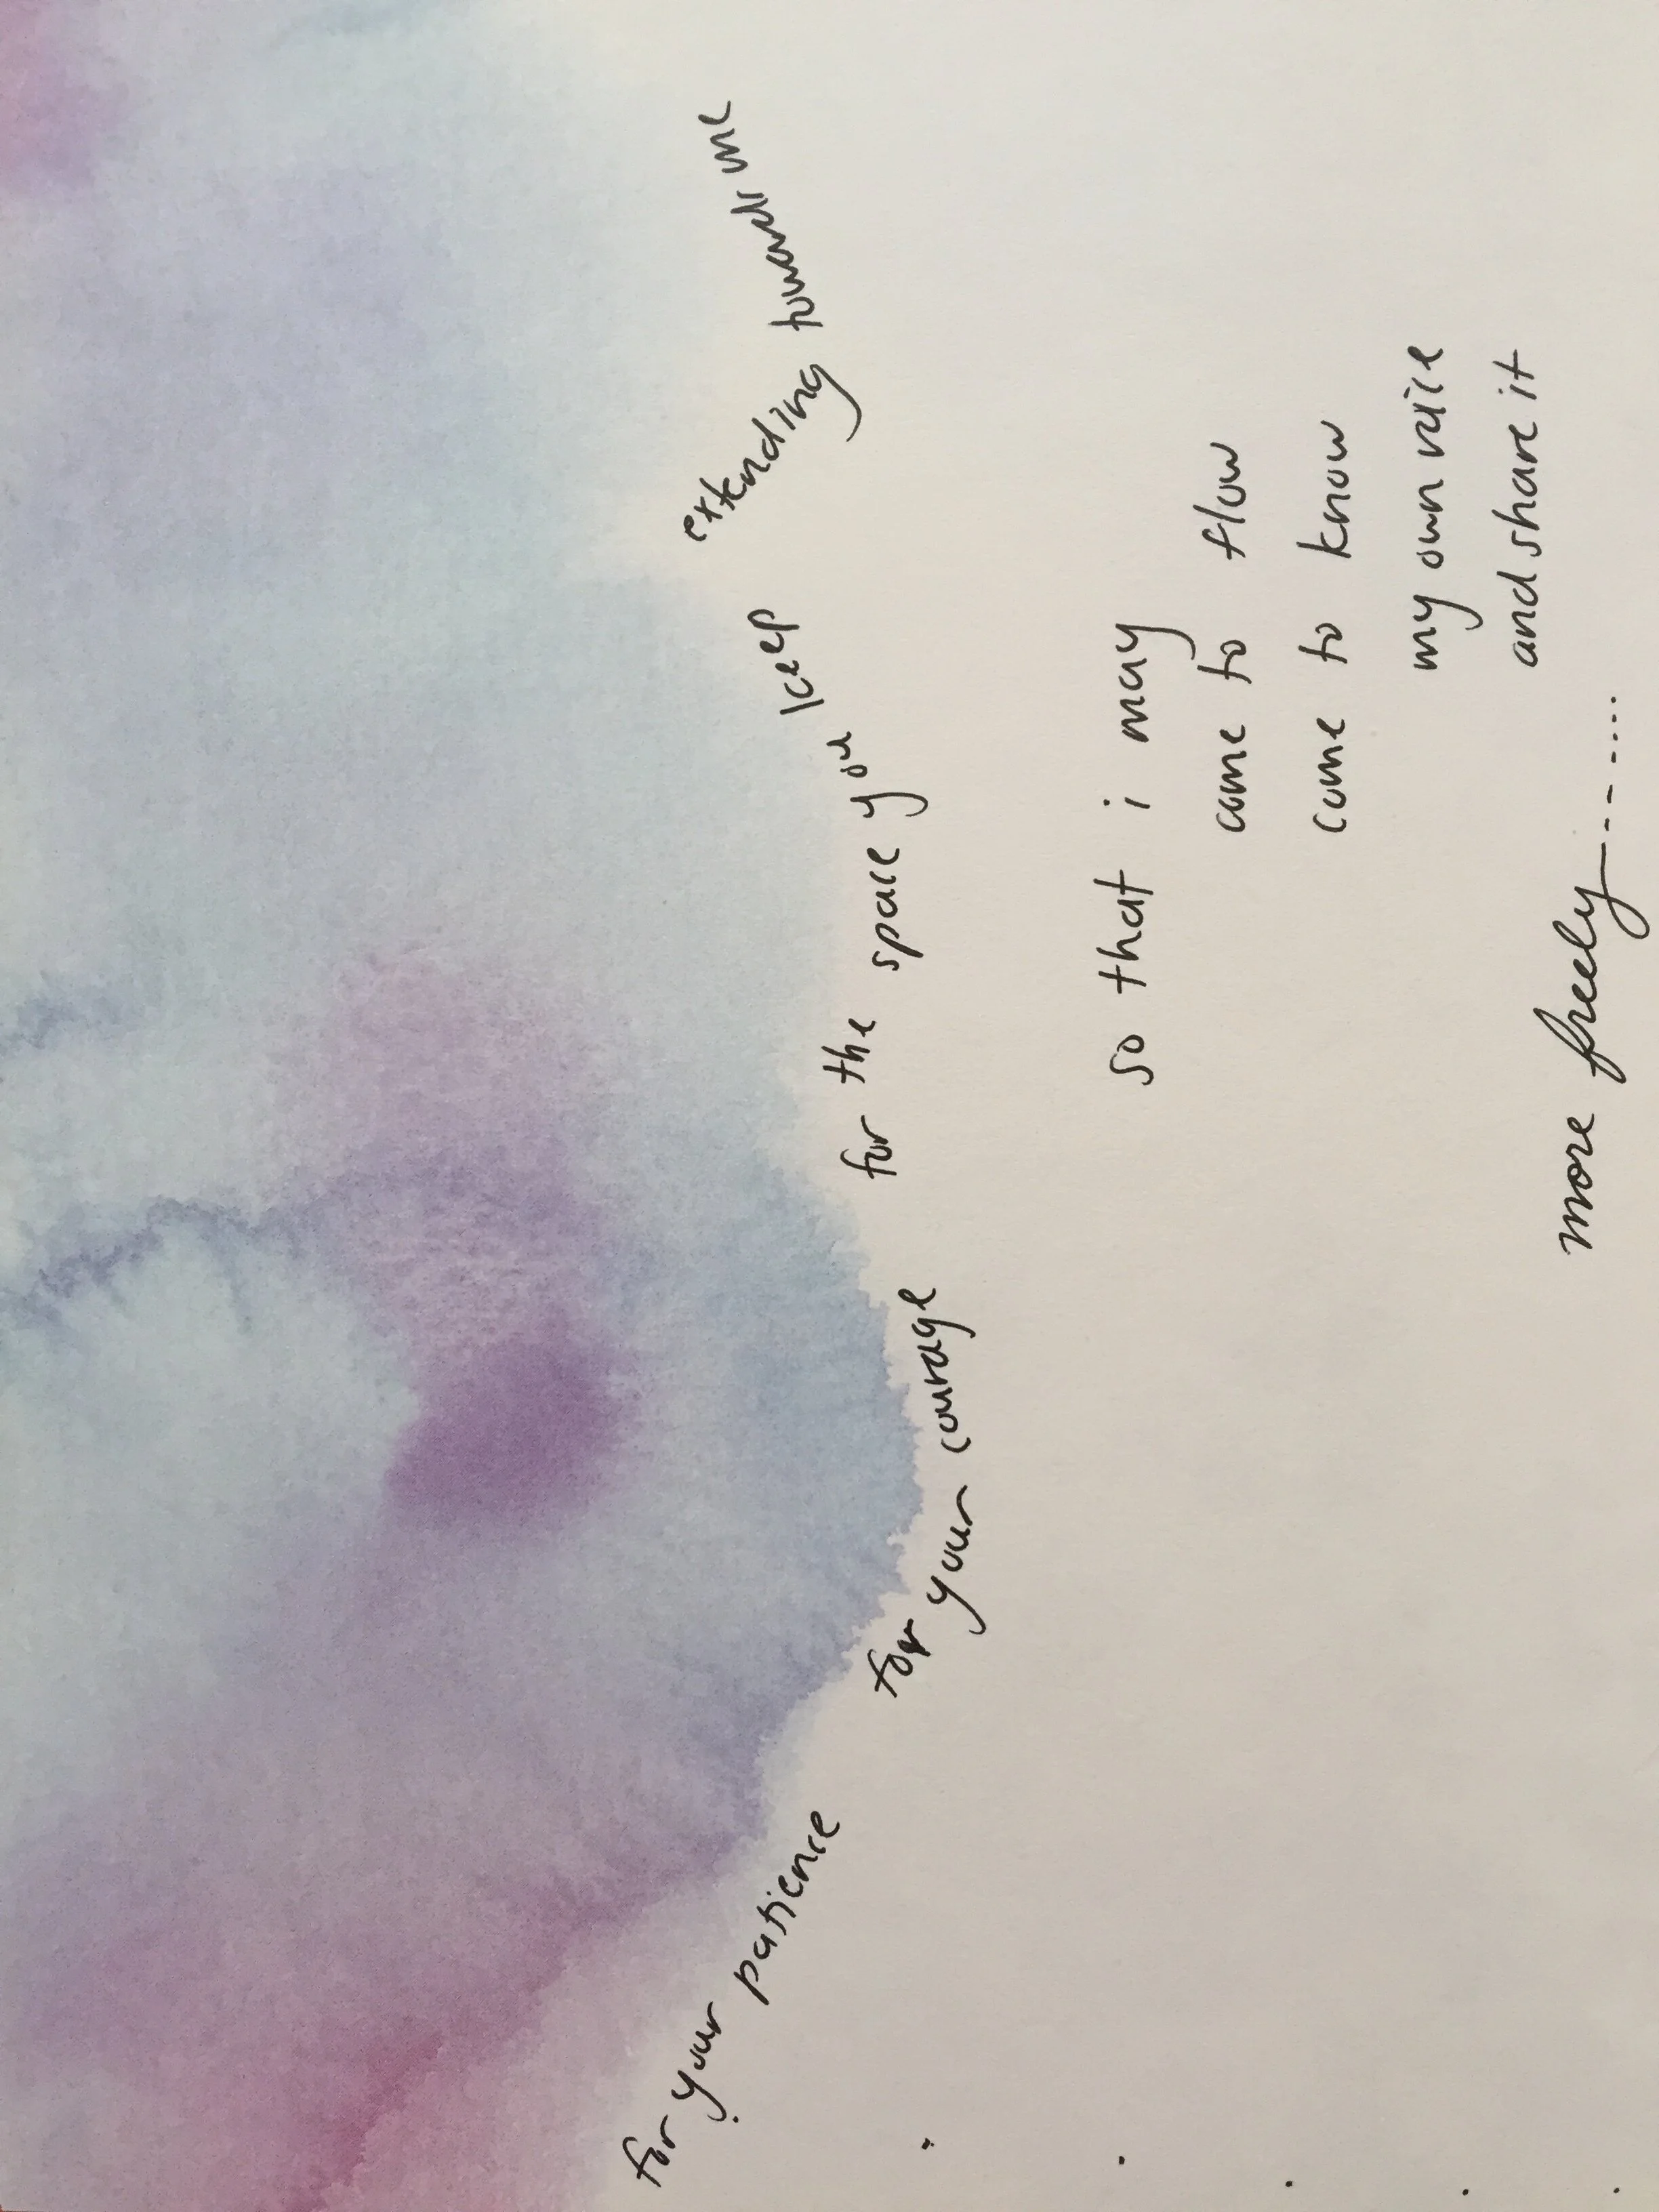 for your patience
for your courage
for the space you keep
extending towards me
so that i may
come to flow
come to know
my own voice
and share it
more freely........